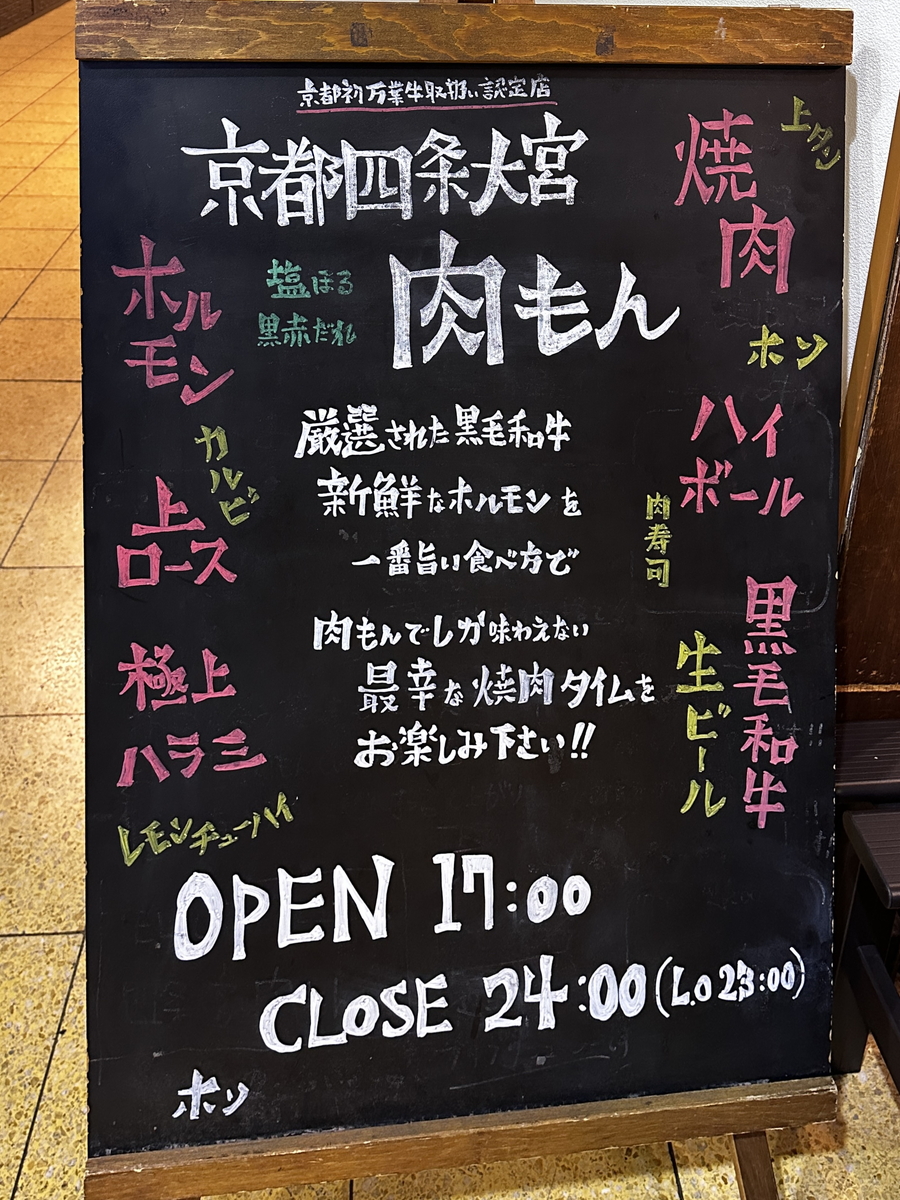 京都初万葉牛取扱い認定店
京都四条大宮
肉もん
焼肉
上タン
ホルモン
塩ほる
黒赤だれ
ホソ
ハイボール
カルビ
上ロース
肉寿司
厳選された黒毛和牛
新鮮なホルモンを
一番旨い食べ方で
肉もんでしか味わえない
最幸な焼肉タイムを
お楽しみ下さい!!
黒毛和牛
生ビール
極上
ハラミ
レモンチューハイ
OPEN 17:00
CLOSE 24:00(L.O 23:00)
ホソ